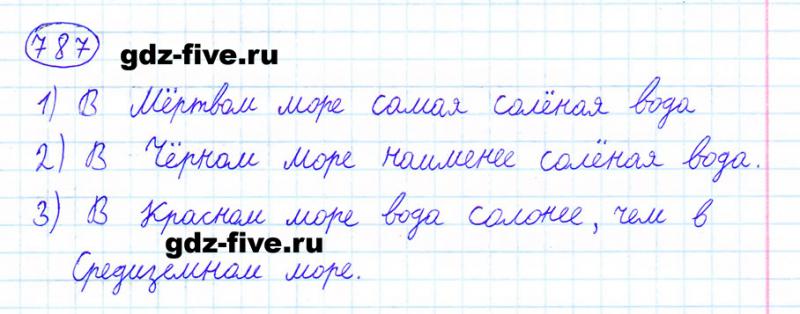 787
gdz-five.ru
1) В Мёртвом море самая солёная вода
2) В Чёрном море наименее солёная вода.
3) В Красном море вода солонее, чем в
gdz-five.ru
Средиземном море.